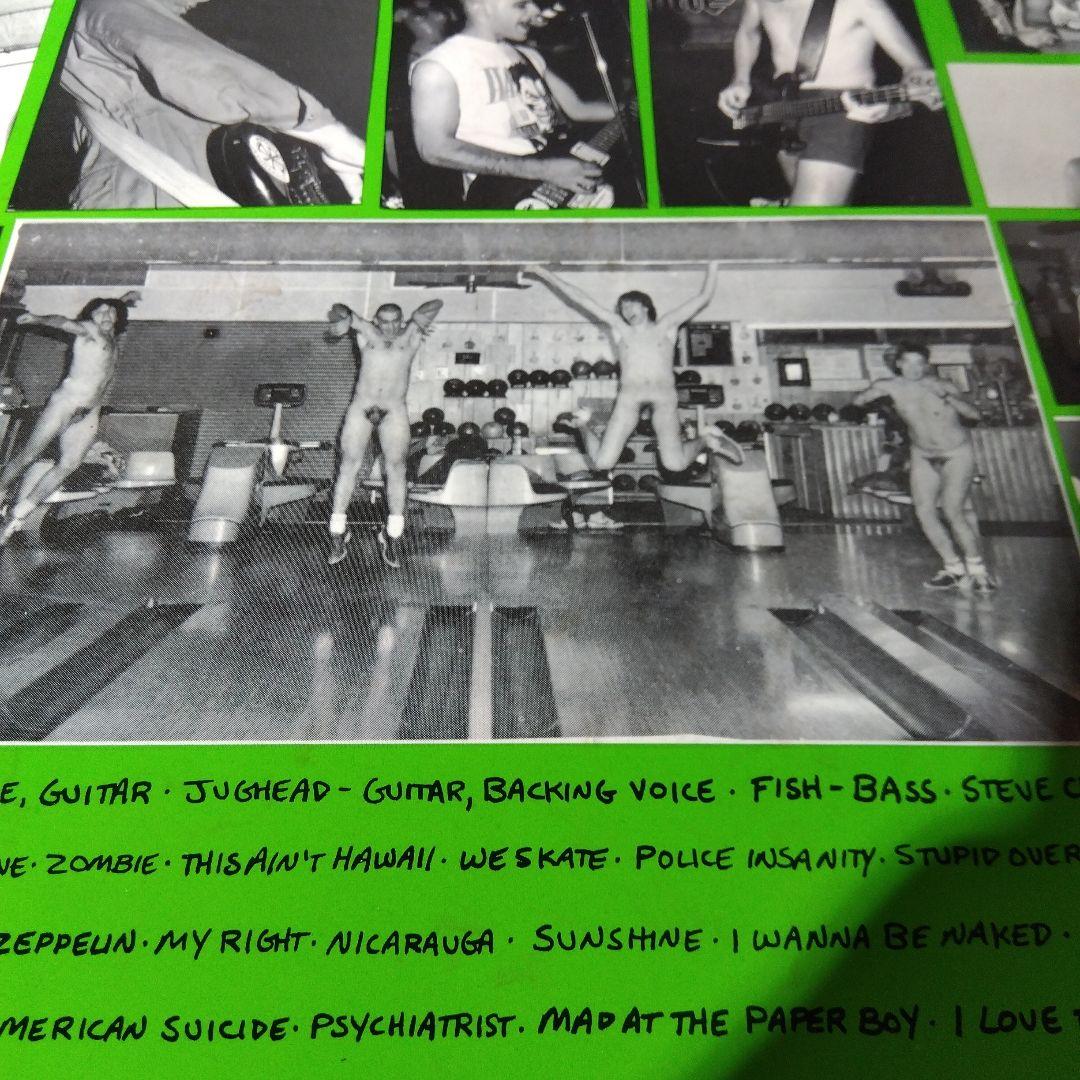 E, GUITAR · JUGHEAD - GUITAR, BACKING VOICE · FISH - BASS · STEVE C
VE · ZOMBIE · THIS AIN'T HAWAII · WE SKATE · POLICE INSANITY · STUPID OVER
ZEPPELIN · MY RIGHT · NICARAUGA · SUNSHINE · I WANNA BE NAKED ·
MERICAN SUICIDE · PSYCHIATRIST · MAD AT THE PAPER BOY · I LOVE